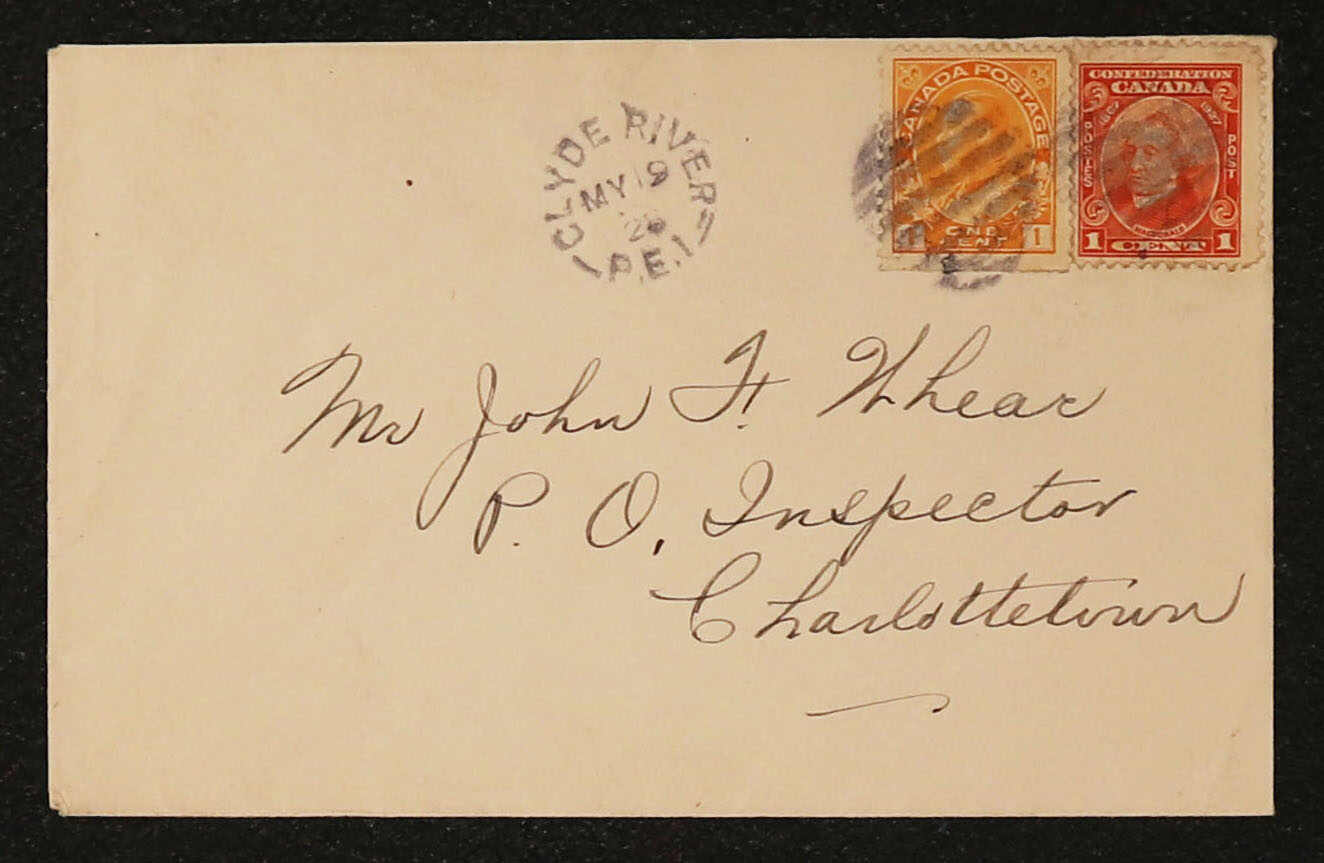 CLYDE RIVER
MY 19
P.E.I.
CANADA POSTAGE
1 ONE CENT 1
CONFEDERATION
CANADA
1867 1927
POSTES POST
1 CENT 1
Mr John F. Whear
P. O. Inspector
Charlottetown